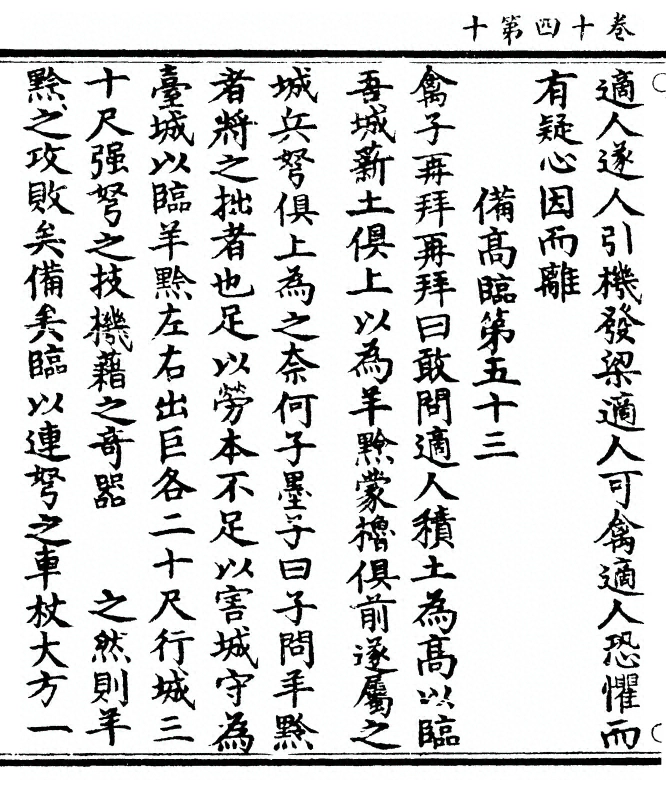 卷十四第十
適人遂人引機發梁適人可禽適人恐懼而
有疑心因而離
備高臨第五十三
禽子再拜再拜曰敢問適人積土為高以臨
吾城薪土俱上以為羊黔蒙櫓俱前遂屬之
城兵弩俱上為之奈何子墨子曰子問羊黔
者將之拙者也足以勞本不足以害城守為
臺城以臨羊黔左右出巨各二十尺行城三
十尺强弩之技機藉之竒器　　之然則羊
黔之攻敗矣備矣臨以連弩之車杖大方一